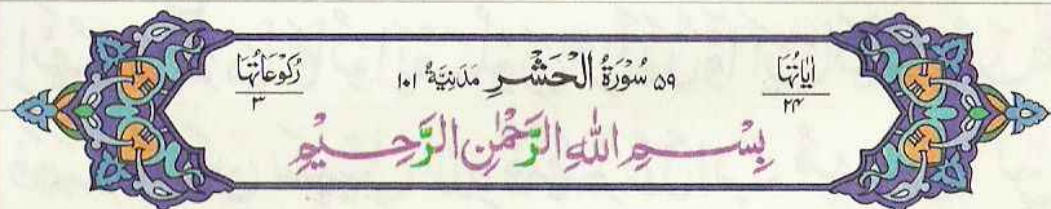 اٰيَاتُهَا ٢٤ ٥٩ سُوْرَةُ الْحَشْرِ مَدَنِيَّةٌ ١٠١ رُكُوْعَاتُهَا ٣
بِسْمِ اللّٰهِ الرَّحْمٰنِ الرَّحِيْمِ